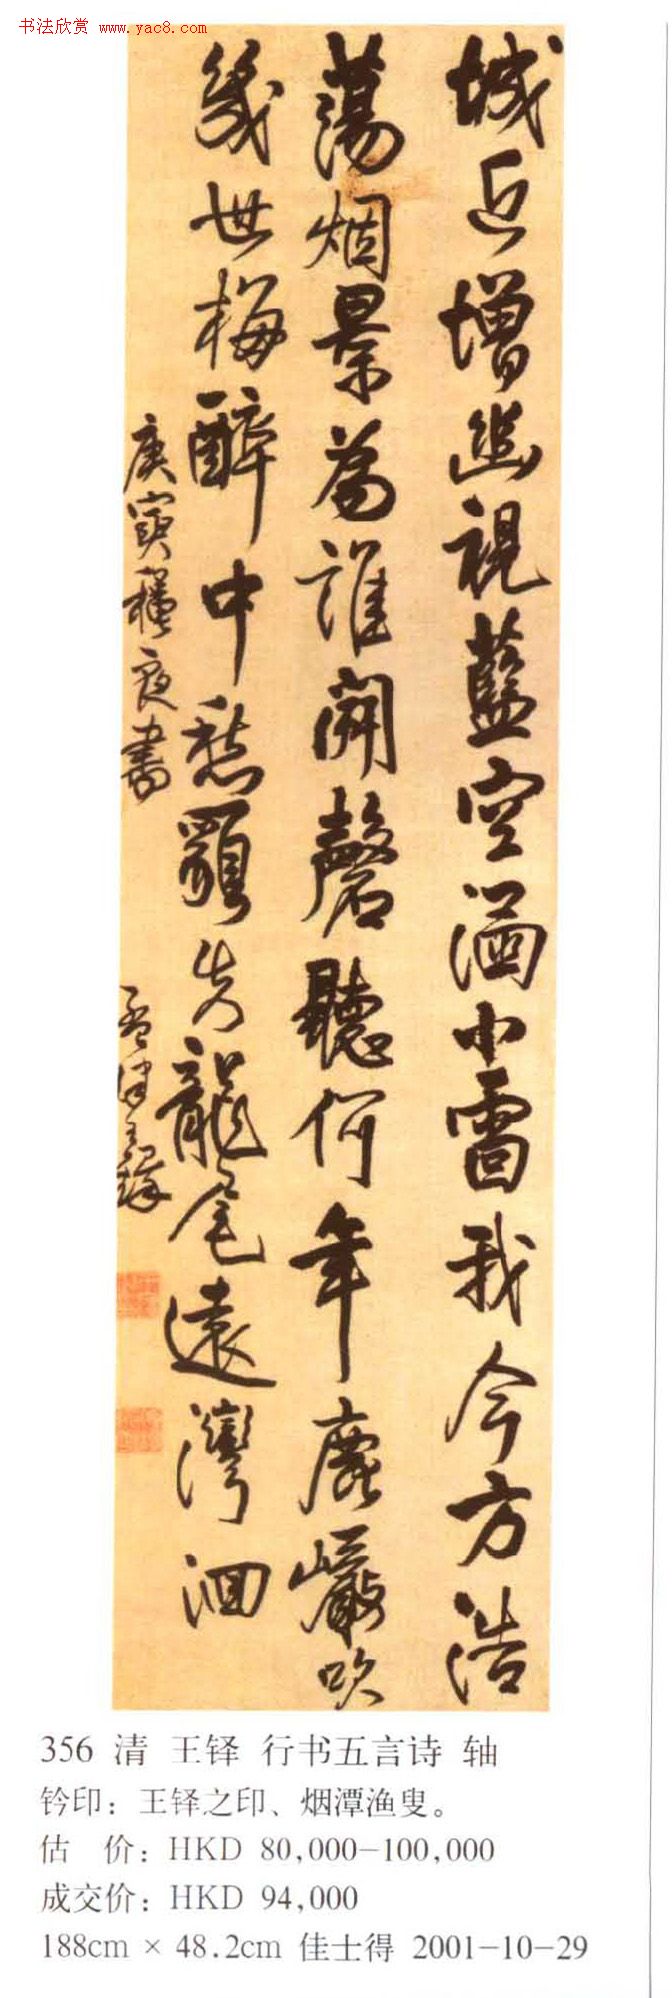 书法欣赏 www.yac8.com
城近增幽視藍空小雷我今方浩
蕩烟景為誰開磬聽何年鹿巖吹
幾世梅醉中愁失龍尾遠灣洄
庚寅夜書
孟津王鐸
356 清 王铎 行书五言诗 轴
钤印：王铎之印、烟潭渔叟。
估 价：HKD 80,000-100,000
成交价：HKD 94,000
188cm × 48.2cm 佳士得 2001-10-29